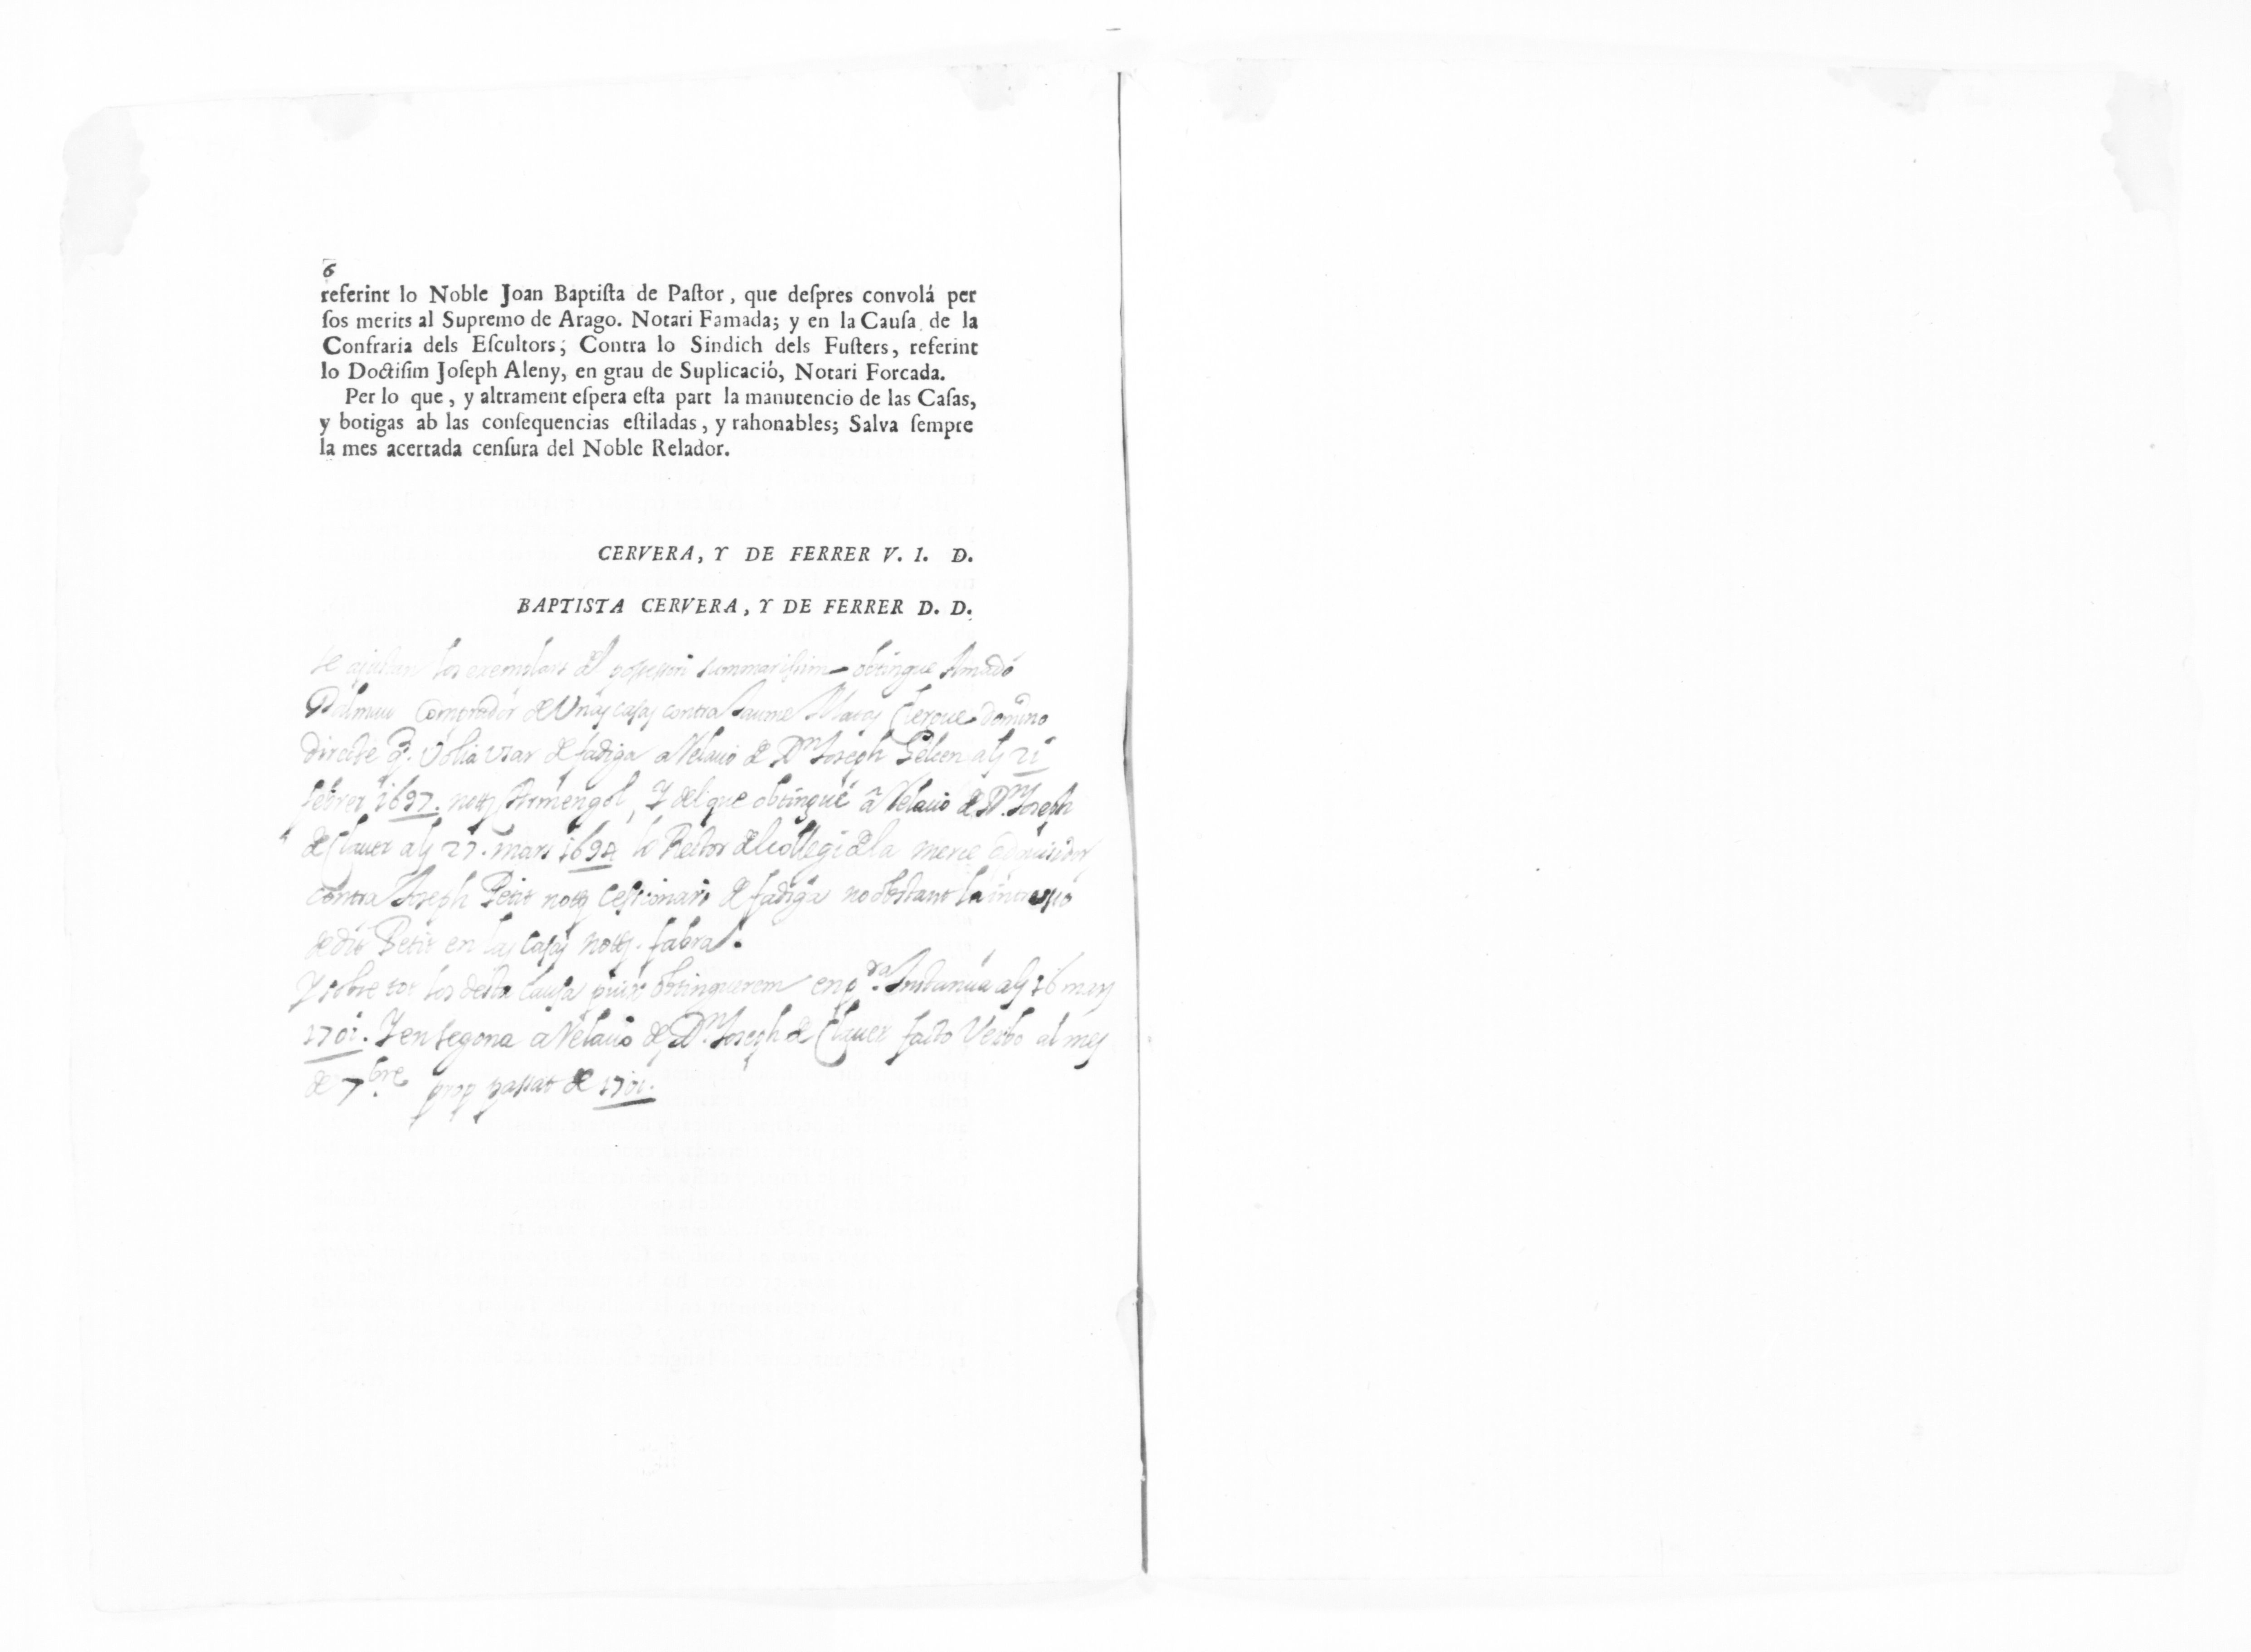 6
referint lo Noble Joan Baptiſta de Paſtor, que deſpres convolá per
ſos merits al Supremo de Arago. Notari Famada; y en la Cauſa de la
Confraria dels Eſcultors; Contra lo Sindich dels Fuſters, referint
lo Doctiſim Joſeph Aleny, en grau de Suplicació, Notari Forcada.
Per lo que, y altrament eſpera eſta part la manutencio de las Caſas,
y botigas ab las conſequencias eſtiladas, y rahonables; Salva ſempre
la mes acertada cenſura del Noble Relador.
CERVERA, Y DE FERRER V. I. D.
BAPTISTA CERVERA, Y DE FERRER D. D.
se ajustan los exemplars del possessori summarissim obtingue Amadó
Dalmau Comprador de Unas casas contra Jaume Clergue domino
directe q. Volia usar de fadiga a Relacio de Dn Joseph als 21
febrer 1697. nott Armengol, Y del que obtingué a Relacio de Dn Joseph
de Claver als 27. mars lo Rector del collegi de la merce
contra Joseph Petit nott Cessionari de fadiga no obstant la
de dit Petit en las Casas nott. fabra.
Y sobre tot los desta causa puix obtinguerem en pra. Instancia als 16 mars
1701. Y en segona a Relacio de Dn Joseph de Claver facto Verbo al mes
de 7bre. prop passat de 1701.